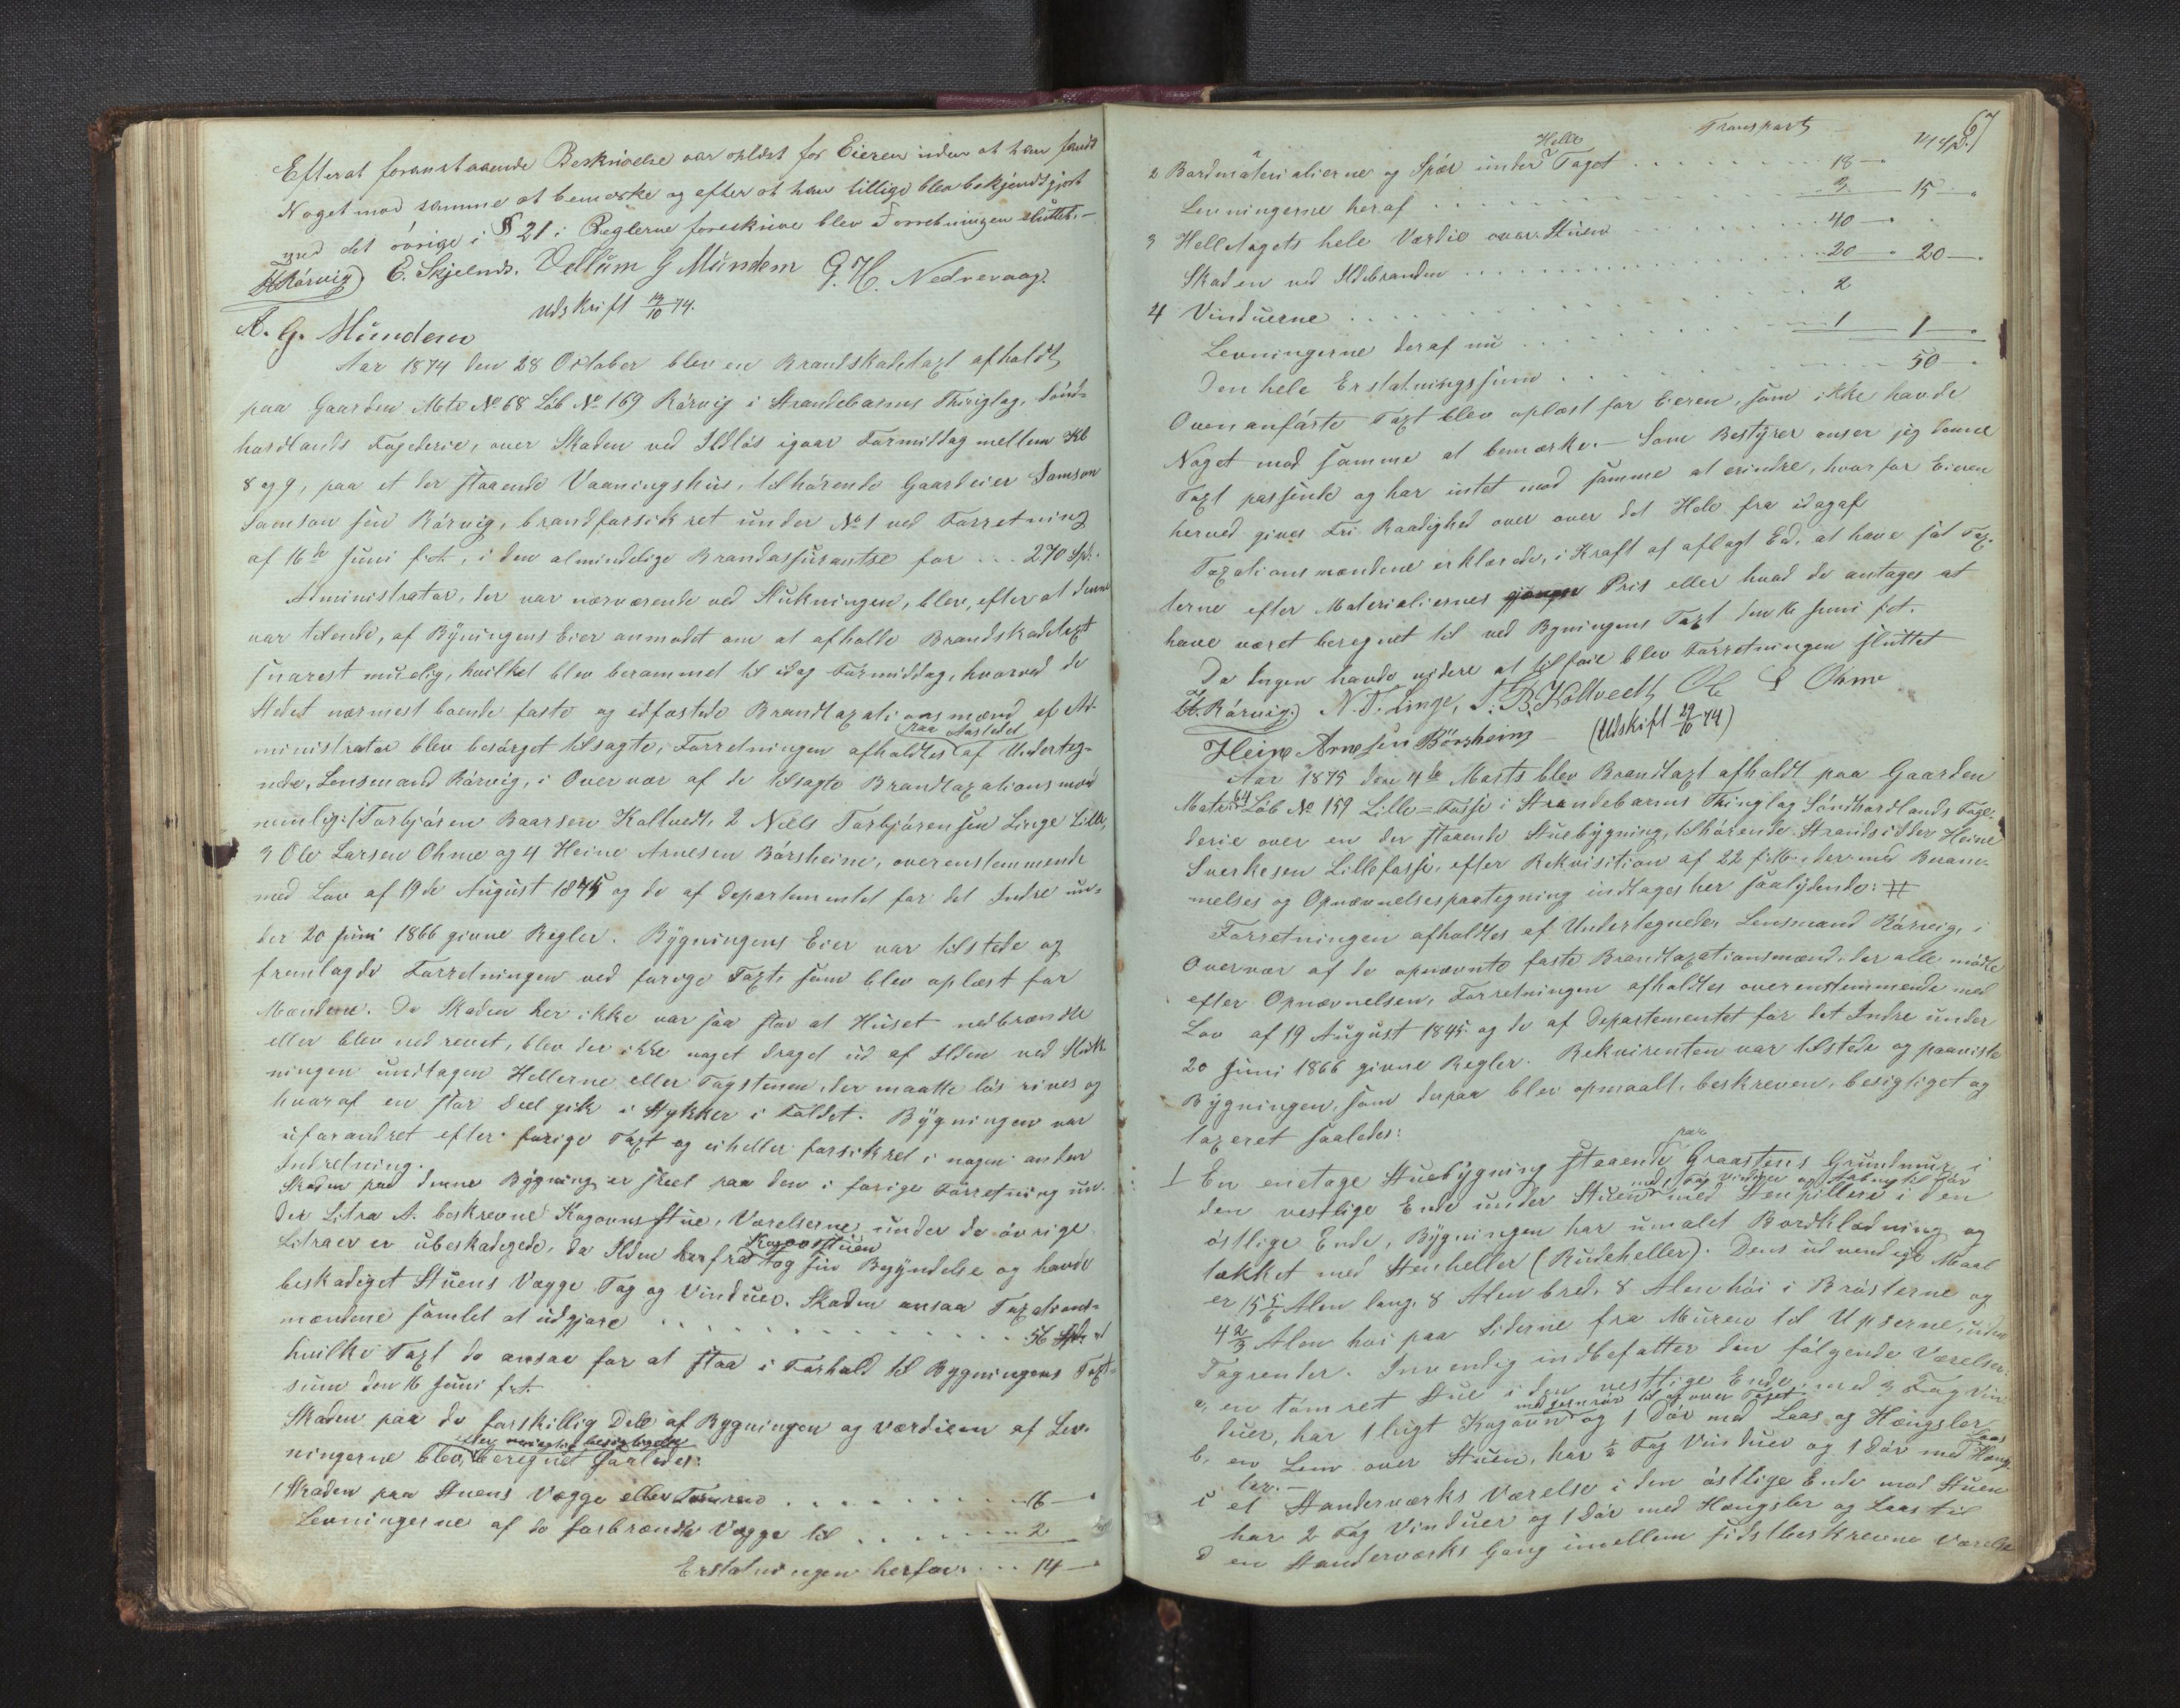 Efterat foranstaaende Beskrivelse var oplæst for Eieren uden at han fandt
Noget mod samme at bemærke og efter at han tillige blev bekjendtgjort
med det øvrige i § 21 i Reglerne foreskrive blev Forretningen sluttet.-
H Rørvig) E. Skjelnds. Vellum G Mundem G. H. Nedrevaag.
A. G. Mundem Udskrift 19/10 74.
Aar 1874 den 28 October blev en Brandskadetaxt afholdt
paa Gaarden Mats No 68 Løb No 169 Rørvig i Strandebarms Thinglag, Sønd-
hordlands Fogderie, over Skaden ved Ildløs igaar Formiddag mellem Kl
8 og 9, paa et der staaende Vaaningshus, tilhørende Gaardeier Samson
Samsonsen Rørvig, brandforsikret under No 1 ved Forretning
af 16de Juni f.A., i den almindelige Brandassurantse for ... 270 Spd.
Administrator, der var nærværende ved Slukningen, blev, efter at denne
var tilende, af Bygningens Eier anmodet om at afholde Brandskadetaxt
snarest muelig, hvilket blev berammet til idag Formiddag, hvorved de
Stedet nærmest boende faste og edfæstede Brandtaxationsmænd af Ad-
ministrator blev besørget tilsagte, Forretningen afholdtes paa Aastedet af Underteg-
nede, Lensmand Rørvig, i Overvær af de tilsagte Brandtaxationsmænd
nemlig: 1 Torbjøren Baarsen Koltvedt, 2 Niels Torbjørensen Linge Lille,
3 Ole Larsen Ohme og 4 Heine Arnesen Børsheim, overenstemmende
med Lov af 19de August 1845 og de af Departementet for det Indre un-
der 20 Juni 1866 givne Regler. Bygningens Eier var tilstede og
fremlagde Forretningen ved forige Taxt, som blev oplæst for
Mændene. Da Skaden her ikke var saa stor at Huset nedbrændte
eller blev nedrevet, blev der ikke noget draget ud af Ilden ved Sluk-
ningen undtagen Hellerne eller Tagstenen, der maatte løs rives og
hvoraf en stor Deel gik i Stykker i Faldet. Bygningen var
uforandret efter forige Taxt og eiheller forsikret i nogen anden
Indretning.
Skaden paa denne Bygning er skeet paa den i forige Forretning un-
der Litra A. beskrevne Kogovnsstue, Værelserne under de øvrige
Litraer er ubeskadegede, da Ilden herfra Kogovnstuen tog sin Begyndelse og havde
beskadiget Stuens Vægge Tag og Vinduer. Skaden ansaa Taxations-
mændene samlet at udgjøre . . . . . . 56 Spd.
hvilke Taxt de ansaa for at staa i Forhold til Bygningens Taxt-
sum den 16 Juni f.A.
Skaden paa de forskillig Dele af Bygningen og værdien af Lev-
ningerne blev, efter nøieagtig besigtigelse beregnet saaledes:
1 Skaden paa Stuens Vægge eller Tømren . . . . . . 16 –
Levningerne af de forbrændte Vægge til . . . . . 2
Erstatningen herfor . . . 14 –
67
Transport 14 Spd.
2 Bordmaterialierne og Spær under Helle Taget . . . . . 18 –
Levningerne heraf . . . . . 3 15 –
3 Helletagets hele Værdie over Stuen . . . . . 40 –
Skaden ved Ildebranden . . . . . 20 – 20 –
4 Vinduerne . . . . . 2
Levningerne deraf nu . . . . . 1 1 –
Den hele Erstatningssum . . . . . 50 –
Ovenanførte Taxt blev oplæst for Eieren, som ikke havde
Noget mod samme at bemærke. – Som Bestyrer anser jeg denne
Taxt passende og har intet mod samme at erindre, hvorfor Eieren
herved gives Fri Raadighed over over det Hele fra idag af
Taxationsmændene erklærede, i Kraft af aflagt Ed, at have sat Tax-
terne efter Materialiernes gjængse Pris eller hvad de antages at
have været beregnet til ved Bygningens Taxt den 16 Juni f.A.
Da Ingen havde videre at tilføie blev Forretningen sluttet
H. Rørvig.) N. T. Linge, T. B. Koltvedt Ole L Ohme
Heine Arnesen Børsheim – (Udskift 29/10 74)
Aar 1875 den 4de Marts blev Brandtaxt afholdt paa Gaarden
Mats No 64 Løb No 159 Lille-Fosse i Strandebarms Thinglag Søndhordlands Foge-
derie over en der staaende Stuebygning, tilhørende Strandsidder Heine
Sverkesen Lillefosse, efter Rekvisition af 22 f. M. der med Beram-
melses og Opnævnelsespaategning indtages her saalydende: #
Forretningen afholdtes af Undertegnede, Lensmand Rørvig, i
Overvær af de opnævnte faste Brandtaxationsmænd, der alle mødte
efter Opnævnelsen, Forretningen afholdtes overenstemmende med
Lov af 19 August 1845 og de af Departementet for det Indre under
20 Juni 1866 givne Regler. Rekvirenten var tilstede og paaviste
Bygningen, som derpaa blev opmaalt, beskreven, besigtiget og
taxeret saaledes:
1 En enetage Stuebygning staaende paa Graastens Grundmur i
den vestlige Ende under Stuen med 1 Fag Vinduer og Aabning til Dør med Stenpillere i den
østlige Ende, Bygningen har umalet Bordklædning og
tækket med Stenheller (Rudeheller). Dens udvendige Maal
er 15 5/6 Alen lang, 8 Alen bred, 8 Alen høi i Brøsterne og
4 2/3 Alen høi paa Siderne fra Muren til Upserne, uden
Tagrender. Invendig indbefatter den følgende Værelser:
a, en tømret Stue i den vestlige Ende, med 3 Fag Vin-
duer, har 1 lugt Kogovn med jernrør til og over Taget og 1 Dør med Laas og Hængsler
b, en Lem over Stuen, har ½ Fag Vinduer og 1 Dør med Laas Hæng-
ler. –
c et Standerværks Værelse i den østlige Ende mod Stuen
har 2 Fag Vinduer og 1 Dør med Hængsler og Laas til
d en Standerværks Gang imellem sidstbeskrevne Værelse